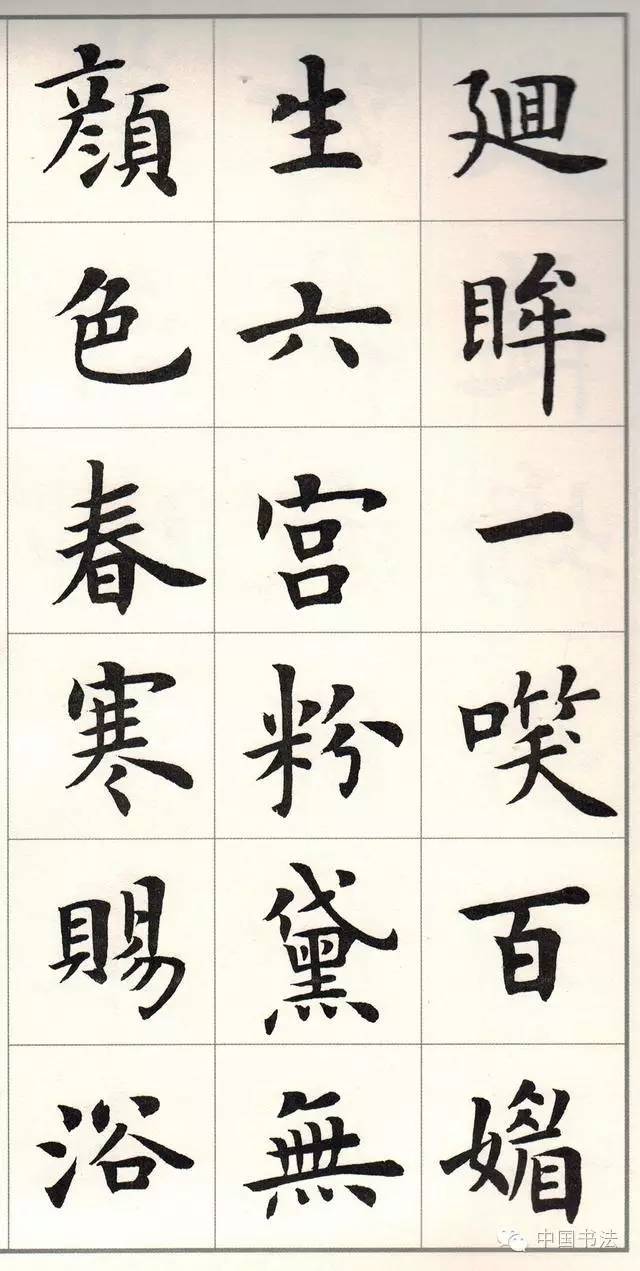 廻眸一噗百媚
生六宮粉黛無
顔色春寒賜浴
中国书法